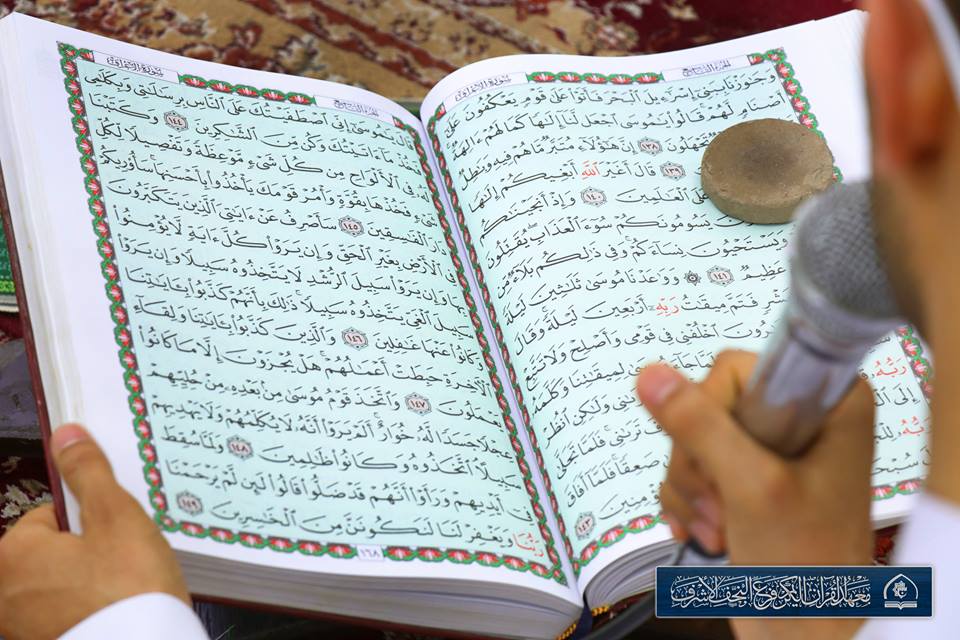 سورة الأعراف
وَجَٰوَزْنَا بِبَنِىٓ إِسْرَٰٓءِيلَ ٱلْبَحْرَ فَأَتَوْا۟ عَلَىٰ قَوْمٍ يَعْكُفُونَ عَلَىٰٓ
أَصْنَامٍ لَّهُمْ قَالُوا۟ يَٰمُوسَى ٱجْعَل لَّنَآ إِلَٰهًا كَمَا لَهُمْ ءَالِهَةٌ
تَجْهَلُونَ ١٣٨ إِنَّ هَٰٓؤُلَآءِ مُتَبَّرٌ مَّا هُمْ فِيهِ وَبَٰطِلٌ
١٣٩ قَالَ أَغَيْرَ ٱللَّهِ أَبْغِيكُمْ إِلَٰهًا
عَلَى ٱلْعَٰلَمِينَ ١٤٠ وَإِذْ أَنجَيْنَٰكُم
يَسُومُونَكُمْ سُوٓءَ ٱلْعَذَابِ يُقَتِّلُونَ
وَيَسْتَحْيُونَ نِسَآءَكُمْ وَفِى ذَٰلِكُم بَلَآءٌ مِّن
عَظِيمٌ ١٤١ وَوَٰعَدْنَا مُوسَىٰ ثَلَٰثِينَ لَيْلَةً
فَتَمَّ مِيقَٰتُ رَبِّهِۦٓ أَرْبَعِينَ لَيْلَةً وَقَالَ
ٱخْلُفْنِى فِى قَوْمِى وَأَصْلِحْ وَلَا تَتَّبِعْ
جَآءَ لِمِيقَٰتِنَا وَكَلَّمَهُۥ
رَبُّهُۥ تَرَىٰنِى وَلَٰكِنِ ٱنظُرْ
إِلَى تَرَىٰنِى فَلَمَّا تَجَلَّىٰ
رَبُّهُۥ صَعِقًا فَلَمَّآ أَفَاقَ
١٤٣
سورة الأعراف
يَٰمُوسَىٰٓ إِنِّى ٱصْطَفَيْتُكَ عَلَى ٱلنَّاسِ بِرِسَٰلَٰتِى وَبِكَلَٰمِى
مَآ ءَاتَيْتُكَ وَكُن مِّنَ ٱلشَّٰكِرِينَ ١٤٤ وَكَتَبْنَا
فِى ٱلْأَلْوَاحِ مِن كُلِّ شَىْءٍ مَّوْعِظَةً وَتَفْصِيلًا لِّكُلِّ
شَىْءٍ فَخُذْهَا بِقُوَّةٍ وَأْمُرْ قَوْمَكَ يَأْخُذُوا۟ بِأَحْسَنِهَا سَأُو۟رِيكُمْ
دَارَ ٱلْفَٰسِقِينَ ١٤٥ سَأَصْرِفُ عَنْ ءَايَٰتِىَ ٱلَّذِينَ يَتَكَبَّرُونَ
فِى ٱلْأَرْضِ بِغَيْرِ ٱلْحَقِّ وَإِن يَرَوْا۟ كُلَّ ءَايَةٍ لَّا يُؤْمِنُوا۟
بِهَا وَإِن يَرَوْا۟ سَبِيلَ ٱلرُّشْدِ لَا يَتَّخِذُوهُ سَبِيلًا وَإِن يَرَوْا۟
سَبِيلَ ٱلْغَىِّ يَتَّخِذُوهُ سَبِيلًا ذَٰلِكَ بِأَنَّهُمْ كَذَّبُوا۟ بِـَٔايَٰتِنَا
وَكَانُوا۟ عَنْهَا غَٰفِلِينَ ١٤٦ وَٱلَّذِينَ كَذَّبُوا۟ بِـَٔايَٰتِنَا وَلِقَآءِ
ٱلْـَٔاخِرَةِ حَبِطَتْ أَعْمَٰلُهُمْ هَلْ يُجْزَوْنَ إِلَّا مَا كَانُوا۟
يَعْمَلُونَ ١٤٧ وَٱتَّخَذَ قَوْمُ مُوسَىٰ مِنۢ بَعْدِهِۦ مِنْ حُلِيِّهِمْ
عِجْلًا جَسَدًا لَّهُۥ خُوَارٌ أَلَمْ يَرَوْا۟ أَنَّهُۥ لَا يُكَلِّمُهُمْ وَلَا يَهْدِيهِمْ
سَبِيلًا ٱتَّخَذُوهُ وَكَانُوا۟ ظَٰلِمِينَ ١٤٨ وَلَمَّا سُقِطَ
فِىٓ أَيْدِيهِمْ وَرَأَوْا۟ أَنَّهُمْ قَدْ ضَلُّوا۟ قَالُوا۟ لَئِن لَّمْ يَرْحَمْنَا
رَبُّنَا وَيَغْفِرْ لَنَا لَنَكُونَنَّ مِنَ ٱلْخَٰسِرِينَ ١٤٩
١٦٨
معهد القرآن الكريم فرع النجف الأشرف